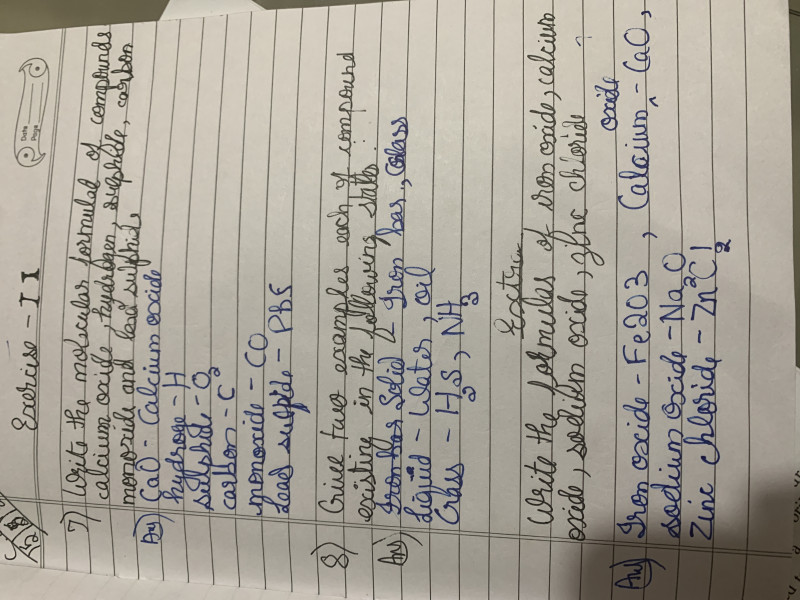 Date
Page
Exercise - II
7) Write the molecular formulae of compounds
calcium oxide, hydrogen, sulphide, carbon
monoxide and lead sulphide,
Ans) CaO - Calcium oxide
hydroge - H
sulphide - O2
carbon - C
monoxide - CO
Lead sulpide - PbS
8) Give two examples each of compound
existing in the following states:
Ans) Solid - Iron bar, Glass
Liquid - Water, oil
Glass - H2S, NH3
Extra
Write the formulas of iron oxide, calcium
oxide, sodium oxide, zinc chloride ?
oxide
Ans) Iron oxide - Fe2O3, Calcium - CaO,
sodium oxide - Na2O
Zinc chloride - ZnCl2